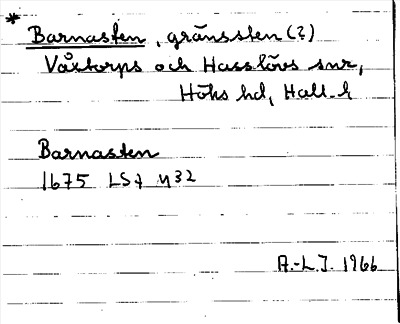 * Barnasten, gränssten (?)
Våxtorps och Hasslövs snr,
Höks hd, Hall. l.
Barnasten
1675 LSA M32
A.-L.J. 1966